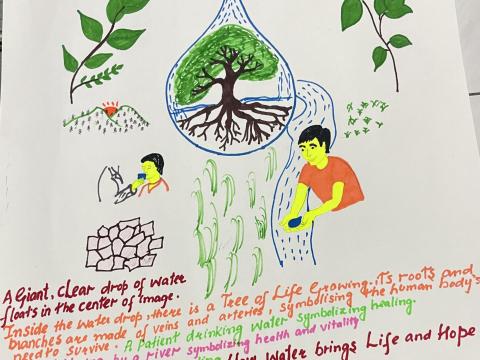 A Giant, clear drop of water
floats in the center of image.
Inside the water drop, there is a Tree of Life Growing, its roots and
branches are made of veins and arteries, symbolising the human body's
need to survive. A Patient drinking water symbolizing healing.
by a river symbolizing health and vitality
How water brings Life and Hope